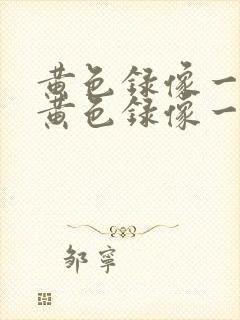 黄色录像一
黄色录像一
邹宁